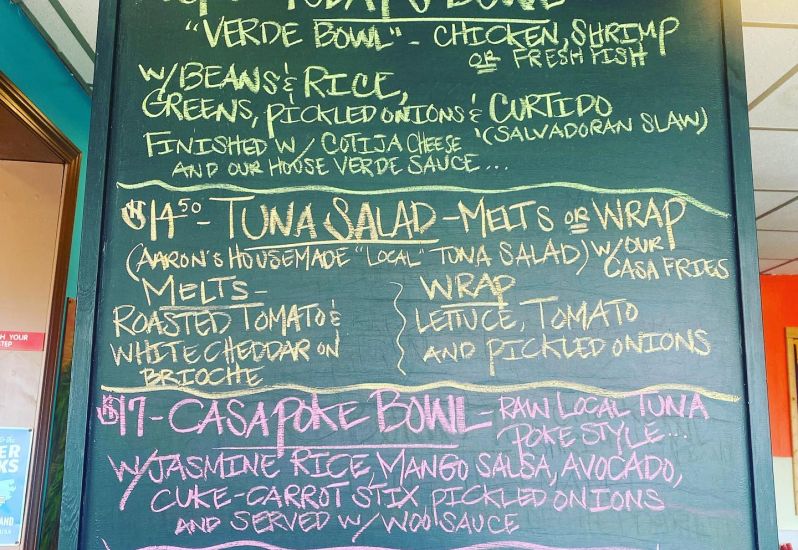 TODAY'S BOWL
"VERDE BOWL" - CHICKEN, SHRIMP
OR FRESH FISH
W/BEANS & RICE,
GREENS, PICKLED ONIONS & CURTIDO
(SALVADORAN SLAW)
FINISHED W/ COTIJA CHEESE
AND OUR HOUSE VERDE SAUCE...
$14.50 - TUNA SALAD - MELTS OR WRAP
(AARON'S HOUSEMADE "LOCAL" TUNA SALAD) W/OUR
CASA FRIES
MELTS-
ROASTED TOMATO &
WHITE CHEDDAR ON
BRIOCHE
WRAP
LETTUCE, TOMATO
AND PICKLED ONIONS
$17 - CASA POKE BOWL - RAW LOCAL TUNA
POKE STYLE...
W/JASMINE RICE, MANGO SALSA, AVOCADO,
CUKE-CARROT STIX PICKLED ONIONS
AND SERVED W/ WOO SAUCE
YOUR
STEP